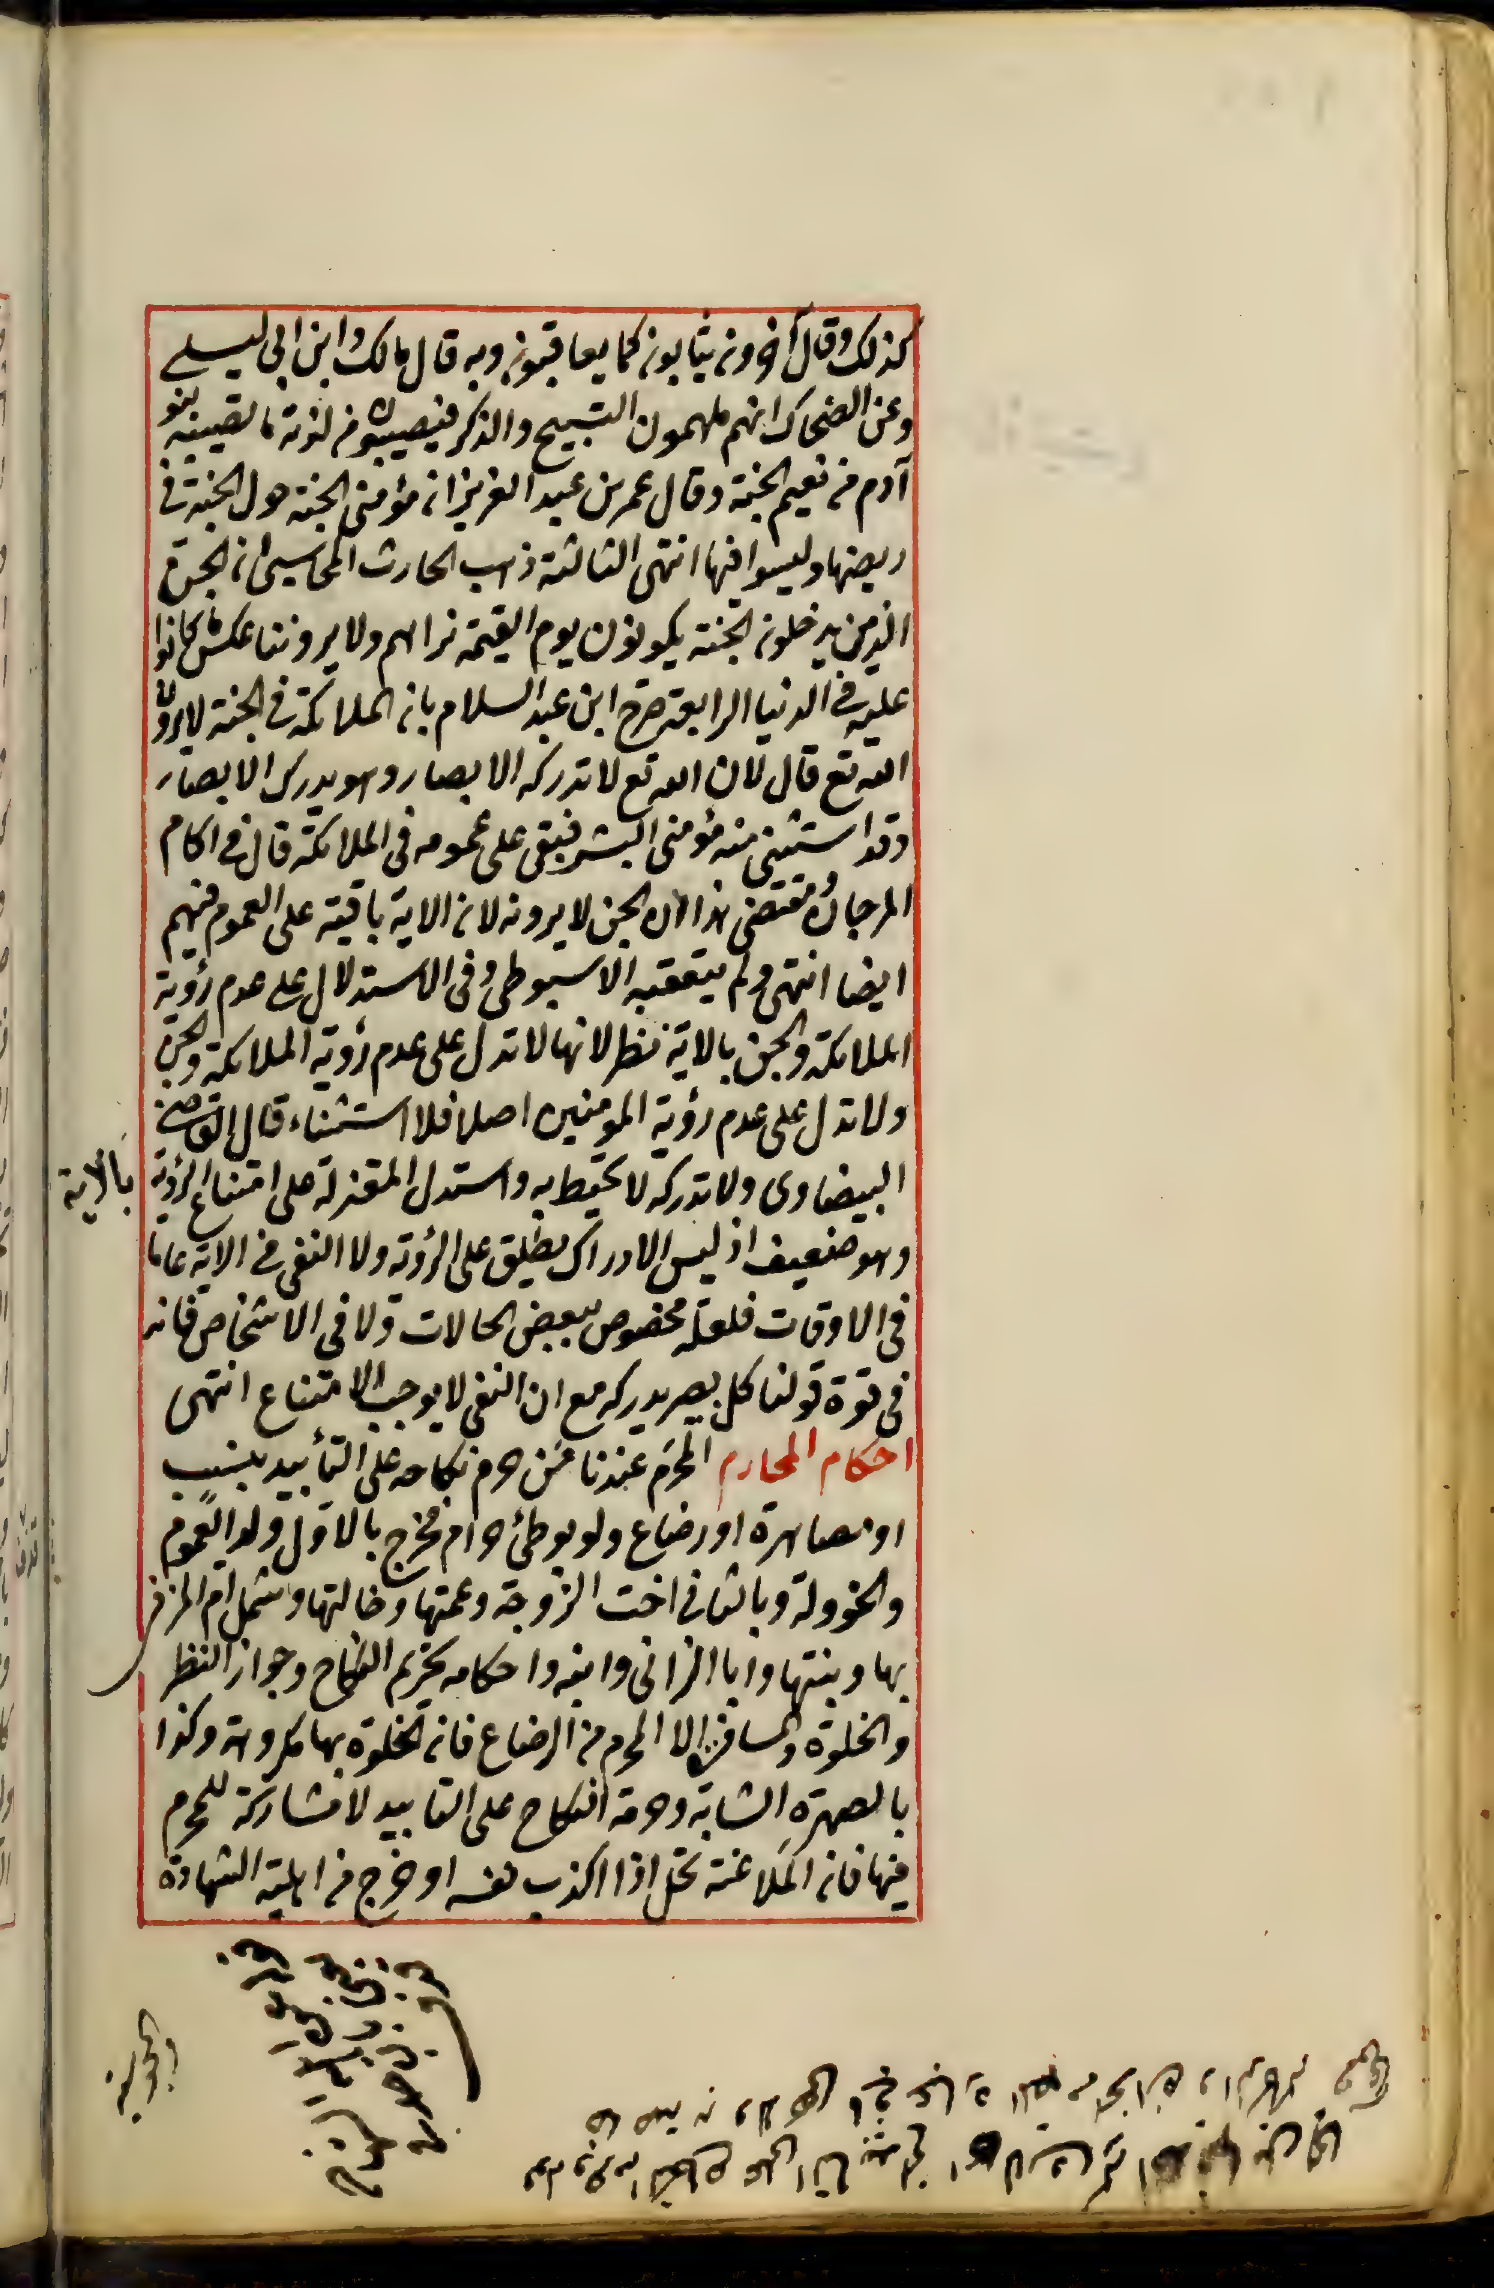 كذلك وقال آخرون يثابون كما يعاقبون وبه قال مالك وابن ابي ليلى
وعن الضحاك انهم ملهمون التسبيح والذكر فيصيبون من لذته ما يصيبه بنو
آدم من نعيم الجنة وقال عمر بن عبد العزيز ان مؤمني الجنة حول الجنة في
ربضها وليسوا فيها انتهى الثالثة ذهب الحارث المحاسبي ان الجن
الذين يدخلون الجنة يكونون يوم القيمة نراهم ولا يروننا عكس ما كانوا
عليه في الدنيا الرابعة صرح ابن عبد السلام بان الملائكة في الجنة لا يرون
الله تع قال لان الله تع لا تدركه الابصار وهو يدرك الابصار
وقد استثنى منه مؤمني البشر فبقى على عمومه في الملائكة قال في اكام
المرجان ومقتضى هذا ان الجن لا يرونه لان الاية باقية على العموم فيهم
ايضا انتهى ولم يتعقبه الاسيوطي وفي الاستدلال على عدم رؤية
الملائكة والجن بالاية نظر لانها لا تدل على عدم رؤية الملائكة والجن
ولا تدل على عدم رؤية المومنين اصلا فلا استثناء قال القاضي
البيضاوى ولا تدركه لا تحيط به واستدل المعتزلة على امتناع الرؤية
بالاية
وهو ضعيف اذ ليس الادراك مطلق على الرؤية ولا النفي في الاية عاما
في الاوقات فلعله مخصوص ببعض الحالات ولا في الاشخاص فانه
في قوة قولنا كل بصر يدركه مع ان النفي لا يوجب الامتناع انتهى
احكام المحارم المحرم عندنا من حرم نكاحه على التأبيد بنسب
او مصاهرة او رضاع ولو بوطئ حرام فخرج بالاول ولد العموم
والخوولة وبالثاني اخت الزوجة وعمتها وخالتها وشمل ام المزني
بها وبنتها وابا الزاني وابنه واحكامه تحريم النكاح وجواز النظر
والخلوة والمسافرة الا المحرم من الرضاع فان الخلوة بها مكروهة وكذا
بالصهرة الشابة وحرمة النكاح على التابيد لا مشاركة للمحرم
فيها فان الملاعنة تحل اذا اكذب نفسه او خرج من اهلية الشهادة